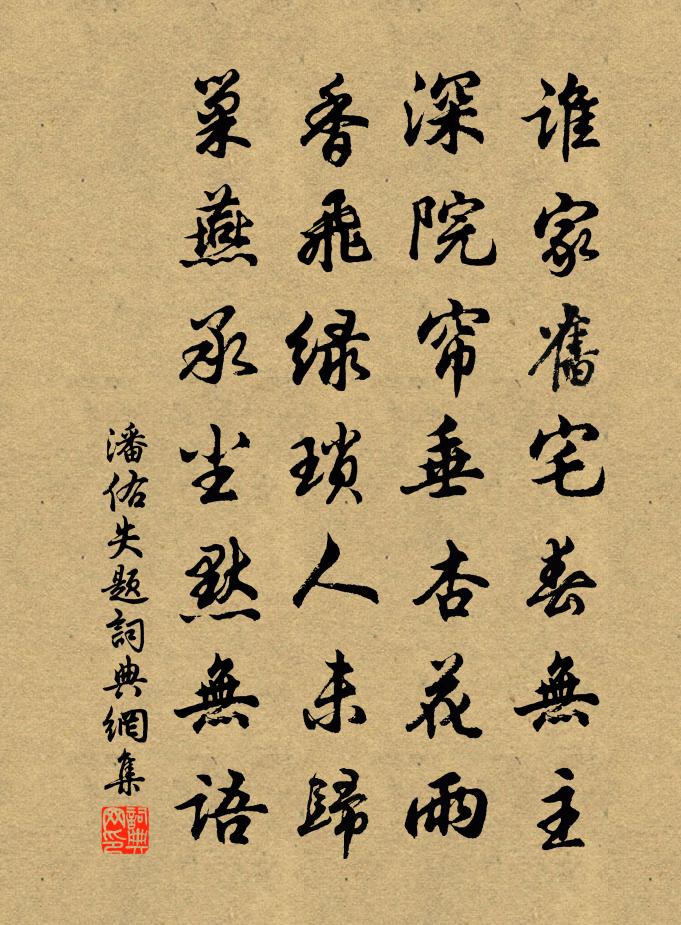 誰家舊宅春無主
深院帘垂杏花雨
香飛綠瑣人未歸
巢燕承尘默無語
潘佑失題詞典網集
詞典網印